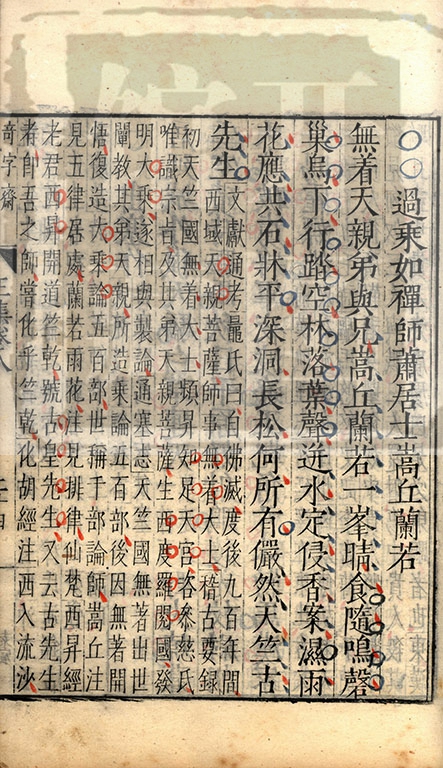 過乘如禪師蕭居士嵩丘蘭若
無着天親弟與兄嵩丘蘭若一峯晴食隨鳴磬
巢烏下行踏空林落葉聲迸水定侵香案濕雨
花應共石牀平深洞長松何所有儼然天竺古
先生
文獻通考鼂氏曰自佛滅度後九百年間
西域天親菩薩師事無着大士稽古要錄
初天竺國無着大士頻昇知足天宮咨參慈氏
唯識宗吉及其弟天親菩薩生西度羅閱國發
明大乘遂相與製論通塞志天竺國無著出世
闡教其弟天親所造乘論五百部後因無著開
悟復造大乘論五百部世稱千部論師嵩丘注
見五律居處蘭若雨花注見排律仙梵西昇經
老君西昇開道竺乾號古皇先生又云古先生
者卽吾之師嘗化乎竺乾化胡經注西入流沙
奇字齋